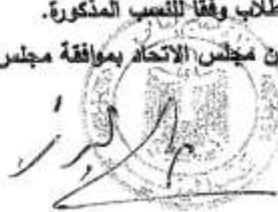 طلاب وفقا للنسب المذكورة.
ن مجلس الاتحاد بموافقة مجلس